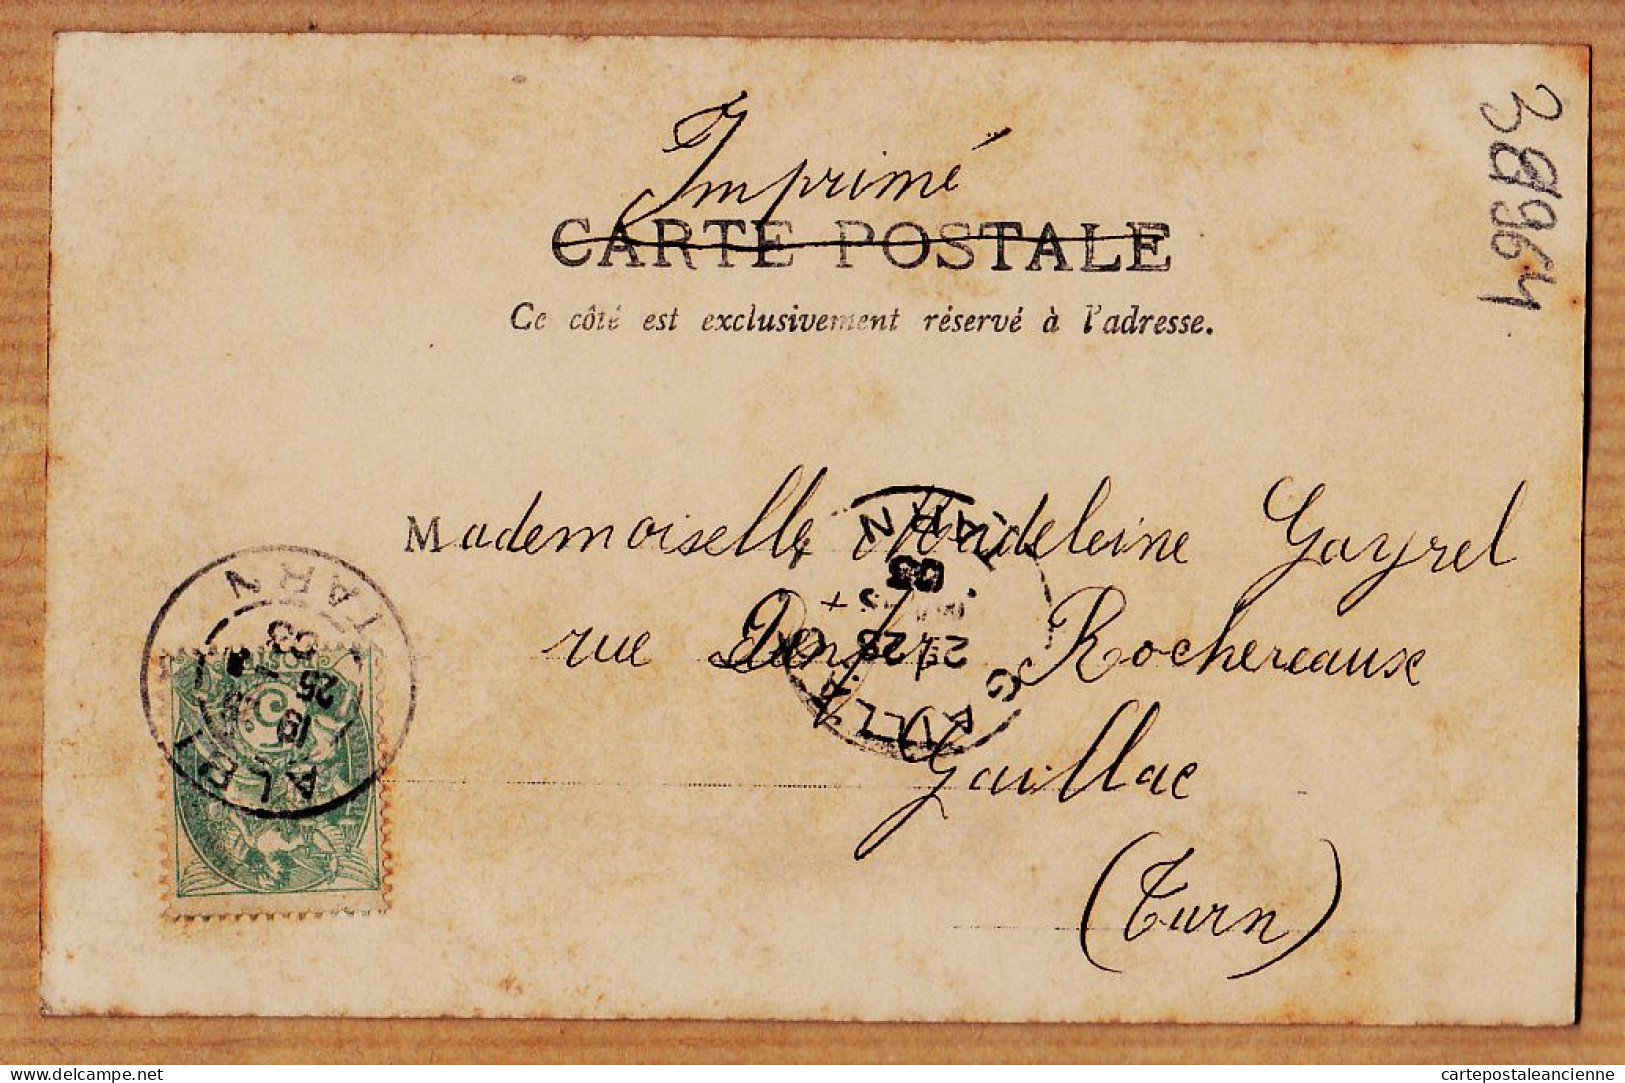 Imprimé
CARTE POSTALE
Ce côté est exclusivement réservé à l'adresse.
38964
Mademoiselle Madeleine Gayrel
rue Denfert Rochereaux
Gaillac
(Tarn)
ALBI
TARN
19
25
03
GAILLAC
TARN
03
cartepostaleancienne.delcampe.net
cartepostaleancienne